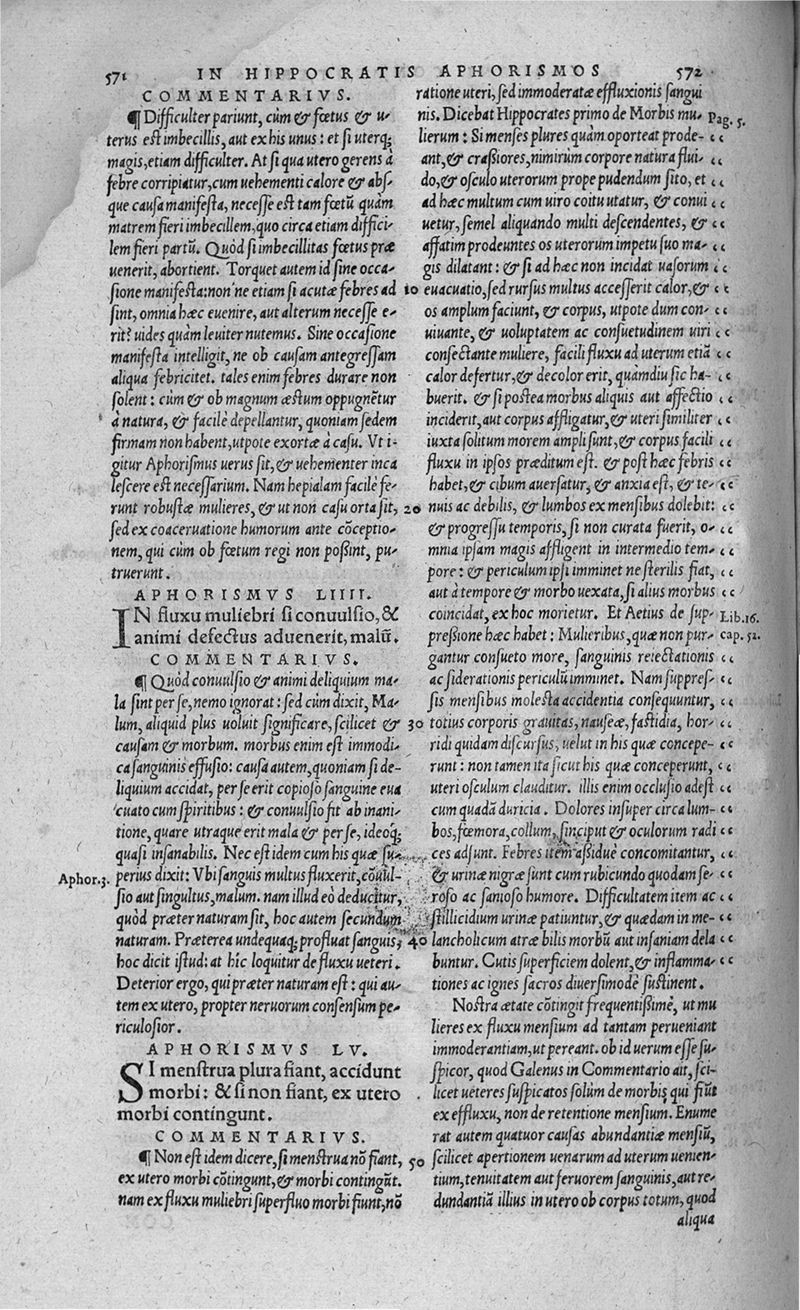 571 IN HIPPOCRATIS APHORISMOS 572
COMMENTARIVS.
¶ Difficulter pariunt, cùm & fœtus & u-
terus est imbecillis, aut ex his unus: et si uterq;
magis, etiam difficulter. At si qua utero gerens à
febre corripiatur, cum uehementi calore & abs-
que causa manifesta, necesse est tam fœtũ quàm
matrem fieri imbecillem, quo circa etiam diffici-
lem fieri partũ. Quòd si imbecillitas fœtus præ
uenerit, abortient. Torquet autem id sine occa-
sione manifesta: non'ne etiam si acutæ febres ad
sint, omnia hæc euenire, aut alterum necesse e-
rit? uides quàm leuiter nutemus. Sine occasione
manifesta intelligit, ne ob causam antegressam
aliqua febricitet. tales enim febres durare non
solent: cùm & ob magnum æstum oppugnẽtur
à natura, & facilè depellantur, quoniam sedem
firmam non habent, utpote exortæ à casu. Vt i-
gitur Aphorismus uerus sit, & uehementer inca
lescere est necessarium. Nam hepialam facilè fe-
runt robustæ mulieres, & ut non casu orta sit,
sed ex coaceruatione humorum ante cõceptio-
nem, qui cùm ob fœtum regi non poßint, pu-
truerunt.
APHORISMVS LIIII.
IN fluxu muliebri si conuulsio, &
animi defectus aduenerit, malũ.
COMMENTARIVS.
¶ Quòd conuulsio & animi deliquium ma-
la sint per se, nemo ignorat: sed cùm dixit, Ma-
lum, aliquid plus uoluit significare, scilicet &
causam & morbum. morbus enim est immodi-
ca sanguinis effusio: causa autem, quoniam si de-
liquium accidat, per se erit copioso sanguine eua
cuato cum spiritibus: & conuulsio fit ab inani-
tione, quare utraque erit mala & per se, ideoq;
quasi insanabilis. Nec est idem cum his quæ su-
Aphor.3. perius dixit: Vbi sanguis multus fluxerit, conuul-
sio aut singultus, malum. nam illud eò deducitur,
quòd præter naturam sit, hoc autem secundum
naturam. Præterea undequaq; profluat sanguis,
hoc dicit istud: at hic loquitur de fluxu ueteri.
Deterior ergo, qui præter naturam est: qui au-
tem ex utero, propter neruorum consensum pe-
riculosior.
APHORISMVS LV.
SI menstrua plura fiant, accidunt
morbi: & si non fiant, ex utero
morbi contingunt.
COMMENTARIVS.
¶ Non est idem dicere, si menstrua nõ fiant,
ex utero morbi cõtingunt, & morbi contingũt.
nam ex fluxu muliebri superfluo morbi fiunt, nõ
ratione uteri, sed immoderatæ effluxionis sangui
nis. Dicebat Hippocrates primo de Morbis mu- Pag. 5.
lierum: Si menses plures quàm oporteat prode- “
ant, & craßiores, nimirùm corpore natura flui- “
do, & osculo uterorum prope pudendum sito, et “
ad hæc multum cum uiro coitu utatur, & conui “
uetur, semel aliquando multi descendentes, & “
affatim prodeuntes os uterorum impetu suo ma- “
gis dilatant: & si ad hæc non incidat uasorum “
10 euacuatio, sed rursus multus accesserit calor, & “
os amplum faciunt, & corpus, utpote dum con- “
uiuante, & uoluptatem ac consuetudinem uiri “
consectante muliere, facili fluxu ad uterum etiã “
calor defertur, & decolor erit, quãdiu sic ha- “
buerit. & si postea morbus aliquis aut affectio “
inciderit, aut corpus affligatur, & uteri similiter “
iuxta solitum morem ampli sunt, & corpus facili “
fluxu in ipsos præditum est. & post hæc febris “
habet, & cibum auersatur, & anxia est, & te- “
20 nuis ac debilis, & lumbos ex mensibus dolebit: “
& progressu temporis, si non curata fuerit, o- “
mnia ipsam magis affligent in intermedio tem- “
pore: & periculum ipsi imminet ne sterilis fiat, “
aut à tempore & morbo uexata, si alius morbus “
coincidat, ex hoc morietur. Et Aetius de sup- Lib.16.
preßione hæc habet: Mulieribus, quæ non pur- cap. 52.
gantur consueto more, sanguinis reiectationis “
ac siderationis periculũ imminet. Nam suppres- “
sis mensibus molesta accidentia consequuntur, “
30 totius corporis grauitas, nauseæ, fastidia, hor- “
ridi quidam discursus, uelut in his quæ concepe- “
runt: non tamen ita sicut his quæ conceperunt, “
uteri osculum clauditur. illis enim occlusio adest “
cum quadã duricia. Dolores insuper circa lum- “
bos, fœmora, collum, sinciput & oculorum radi “
ces adsunt. Febres item aßiduè concomitantur, “
& urinæ nigræ sunt cum rubicundo quodam se- “
roso ac sanioso humore. Difficultatem item ac “
stillicidium urinæ patiuntur, & quædam in me- “
40 lancholicum atræ bilis morbũ aut insaniam dela “
buntur. Cutis superficiem dolent, & inflamma- “
tiones ac ignes sacros diuersimodè sustinent.
Nostra ætate cõtingit frequentißimè, ut mu
lieres ex fluxu mensium ad tantam perueniant
immoderantiam, ut pereant. ob id uerum esse su-
spicor, quod Galenus in Commentario ait, sci-
licet ueteres suspicatos solùm de morbis qui fiũt
ex effluxu, non de retentione mensium. Enume
rat autem quatuor causas abundantiæ mensiũ,
50 scilicet apertionem uenarum ad uterum uenien-
tium, tenuitatem aut feruorem sanguinis, aut re-
dundantiã illius in utero ob corpus totum, quod
aliqua